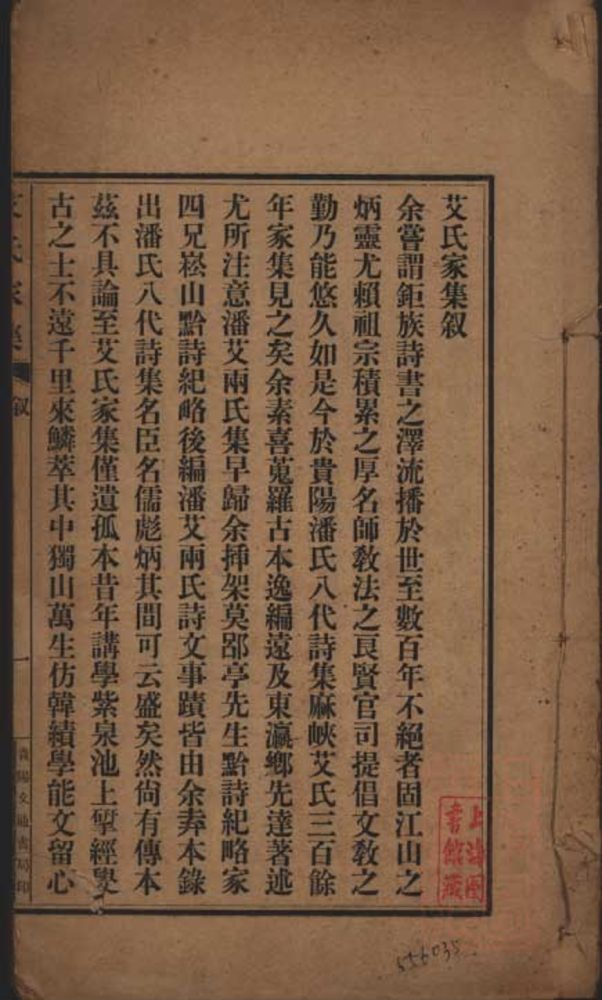 艾氏家集叙
余嘗謂鉅族詩書之澤流播於世至數百年不絕者固江山之
炳靈尤賴祖宗積累之厚名師教法之良賢官司提倡文教之
勤乃能悠久如是今於貴陽潘氏八代詩集麻峽艾氏三百餘
年家集見之矣余素喜蒐羅古本逸編遠及東瀛鄉先達著述
尤所注意潘艾兩氏集早歸余揷架莫郘亭先生黔詩紀略家
四兄崧山黔詩紀略後編潘艾兩氏詩文事蹟皆由余弆本錄
出潘氏八代詩集名臣名儒彪炳其間可云盛矣然尙有傳本
茲不具論至艾氏家集僅遺孤本昔年講學紫泉池上揅經學
古之士不遠千里來鱗萃其中獨山萬生仿韓績學能文留心
艾氏家集
叙
一
貴陽文通書局印
上海圖
書館藏
556035